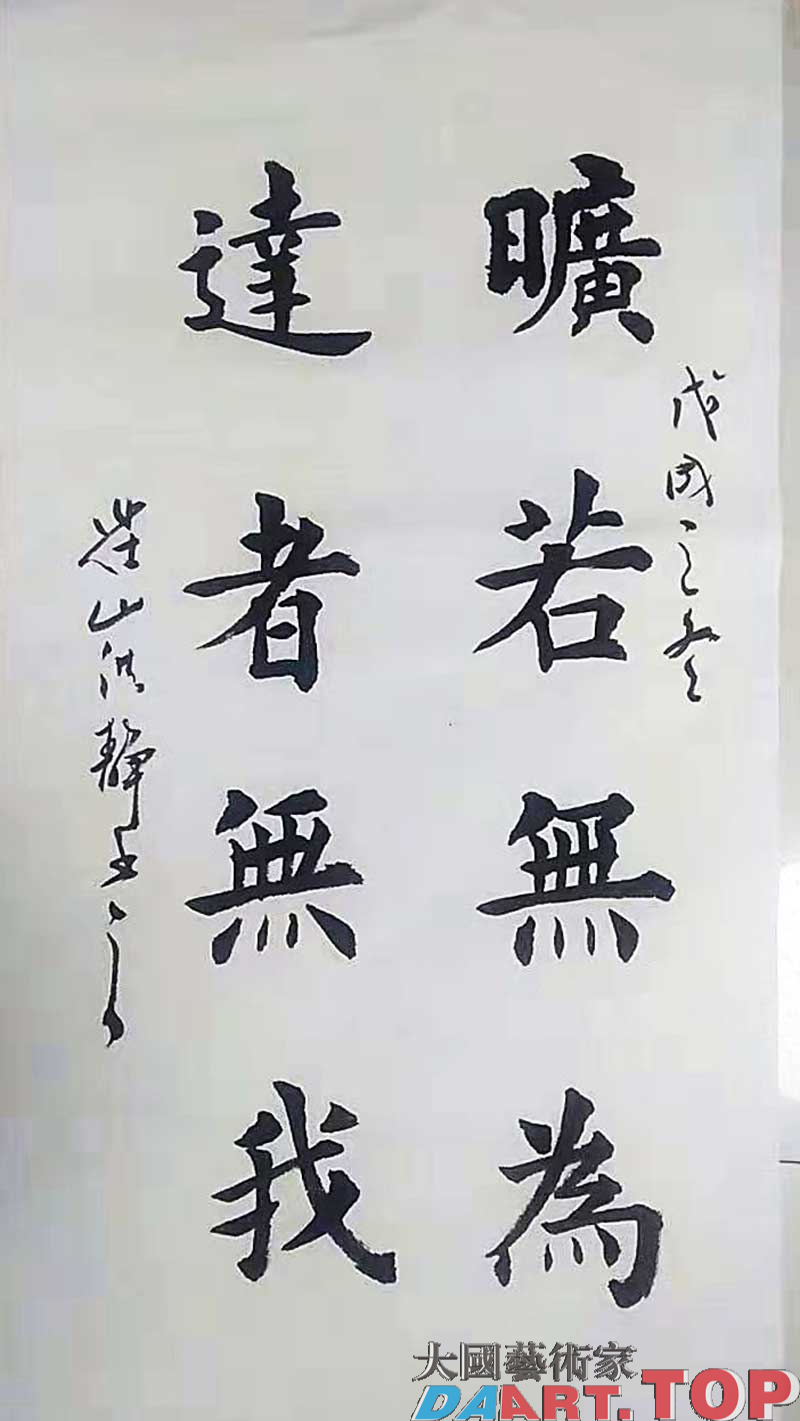 戊戌之冬
曠若無為
達者無我
山洪靜書之
大國藝術家
DAART.TOP